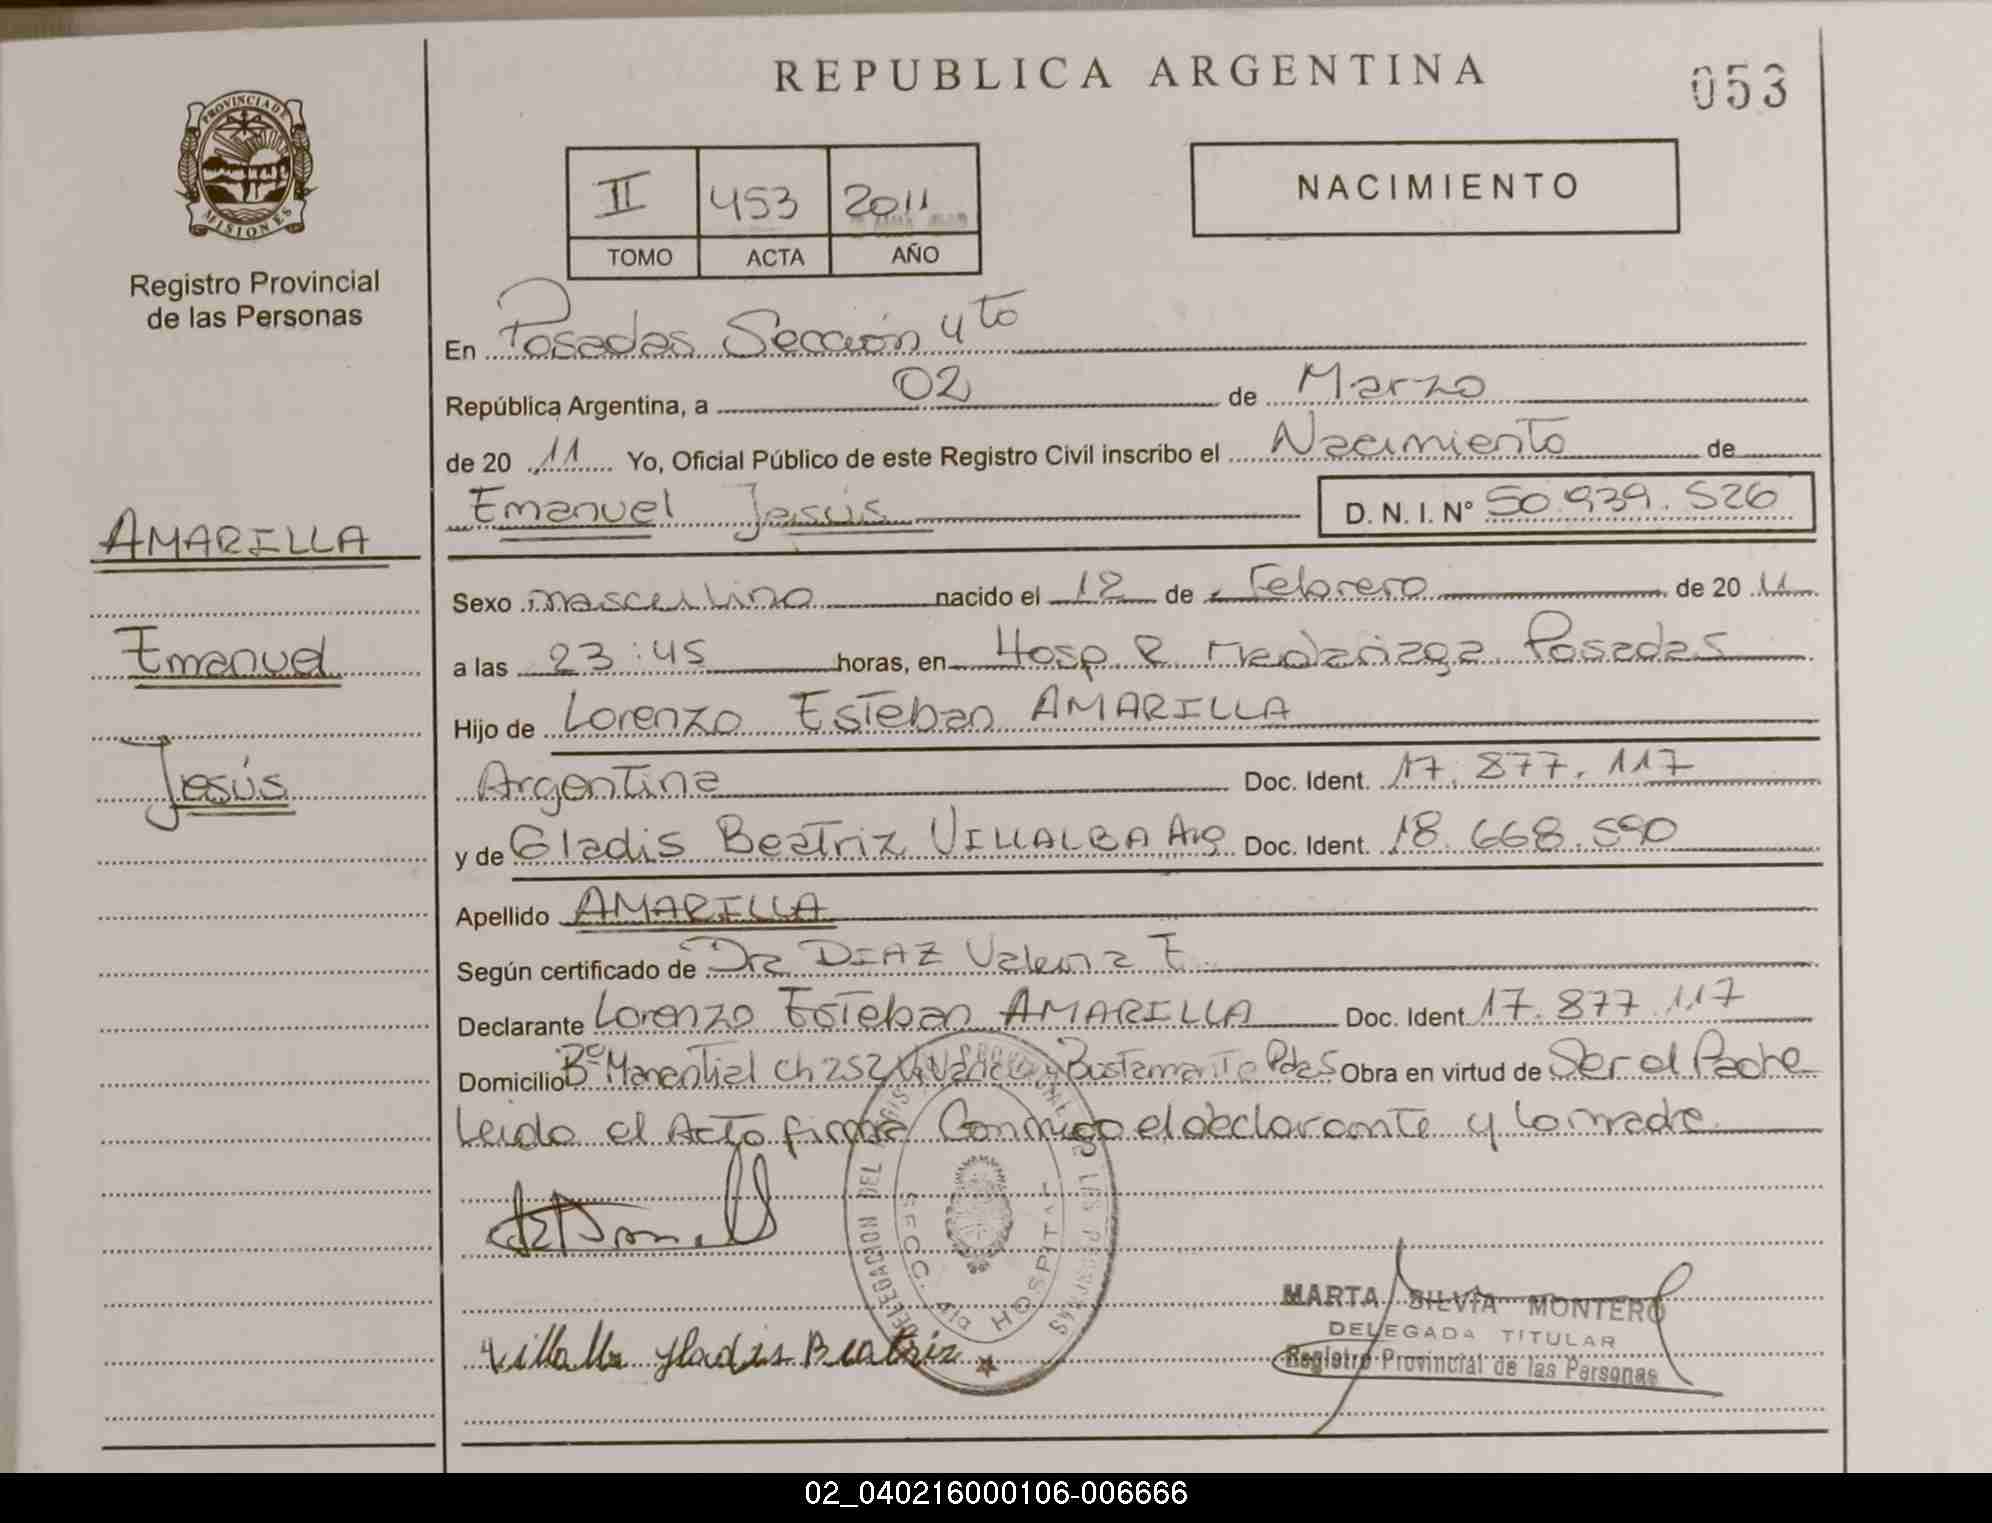 REPUBLICA ARGENTINA
053
PROVINCIA DE
MISIONES
Registro Provincial
de las Personas
II 453 2011
TOMO ACTA AÑO
NACIMIENTO
En Posadas Sección 4to
República Argentina, a 02 de Marzo
de 20 11 Yo, Oficial Público de este Registro Civil inscribo el Nacimiento de
Emanuel Jesús D. N. I. Nº 50.939.526
AMARILLA
Emanuel
Jesús
Sexo masculino nacido el 12 de Febrero de 20 11
a las 23:45 horas, en Hosp R Madariaga Posadas
Hijo de Lorenzo Esteban AMARILLA
Argentina Doc. Ident. 17.877.117
y de Gladis Beatriz VILLALBA Arg Doc. Ident. 18.668.590
Apellido AMARILLA
Según certificado de Dra DIAZ Valeria E.
Declarante Lorenzo Esteban AMARILLA Doc. Ident. 17.877.117
Domicilio Bº Manantial Ch 252 Bustamante Pdas Obra en virtud de Ser el Padre
Leido el Acto firma Conmigo el declarante y la madre
DELEGACION DEL REGISTRO PROVINCIAL DE LAS PERSONAS
SECC. HOSPITAL
Villalba Gladis Beatriz
MARTA SILVIA MONTERO
DELEGADA TITULAR
Registro Provincial de las Personas
02_040216000106-006666